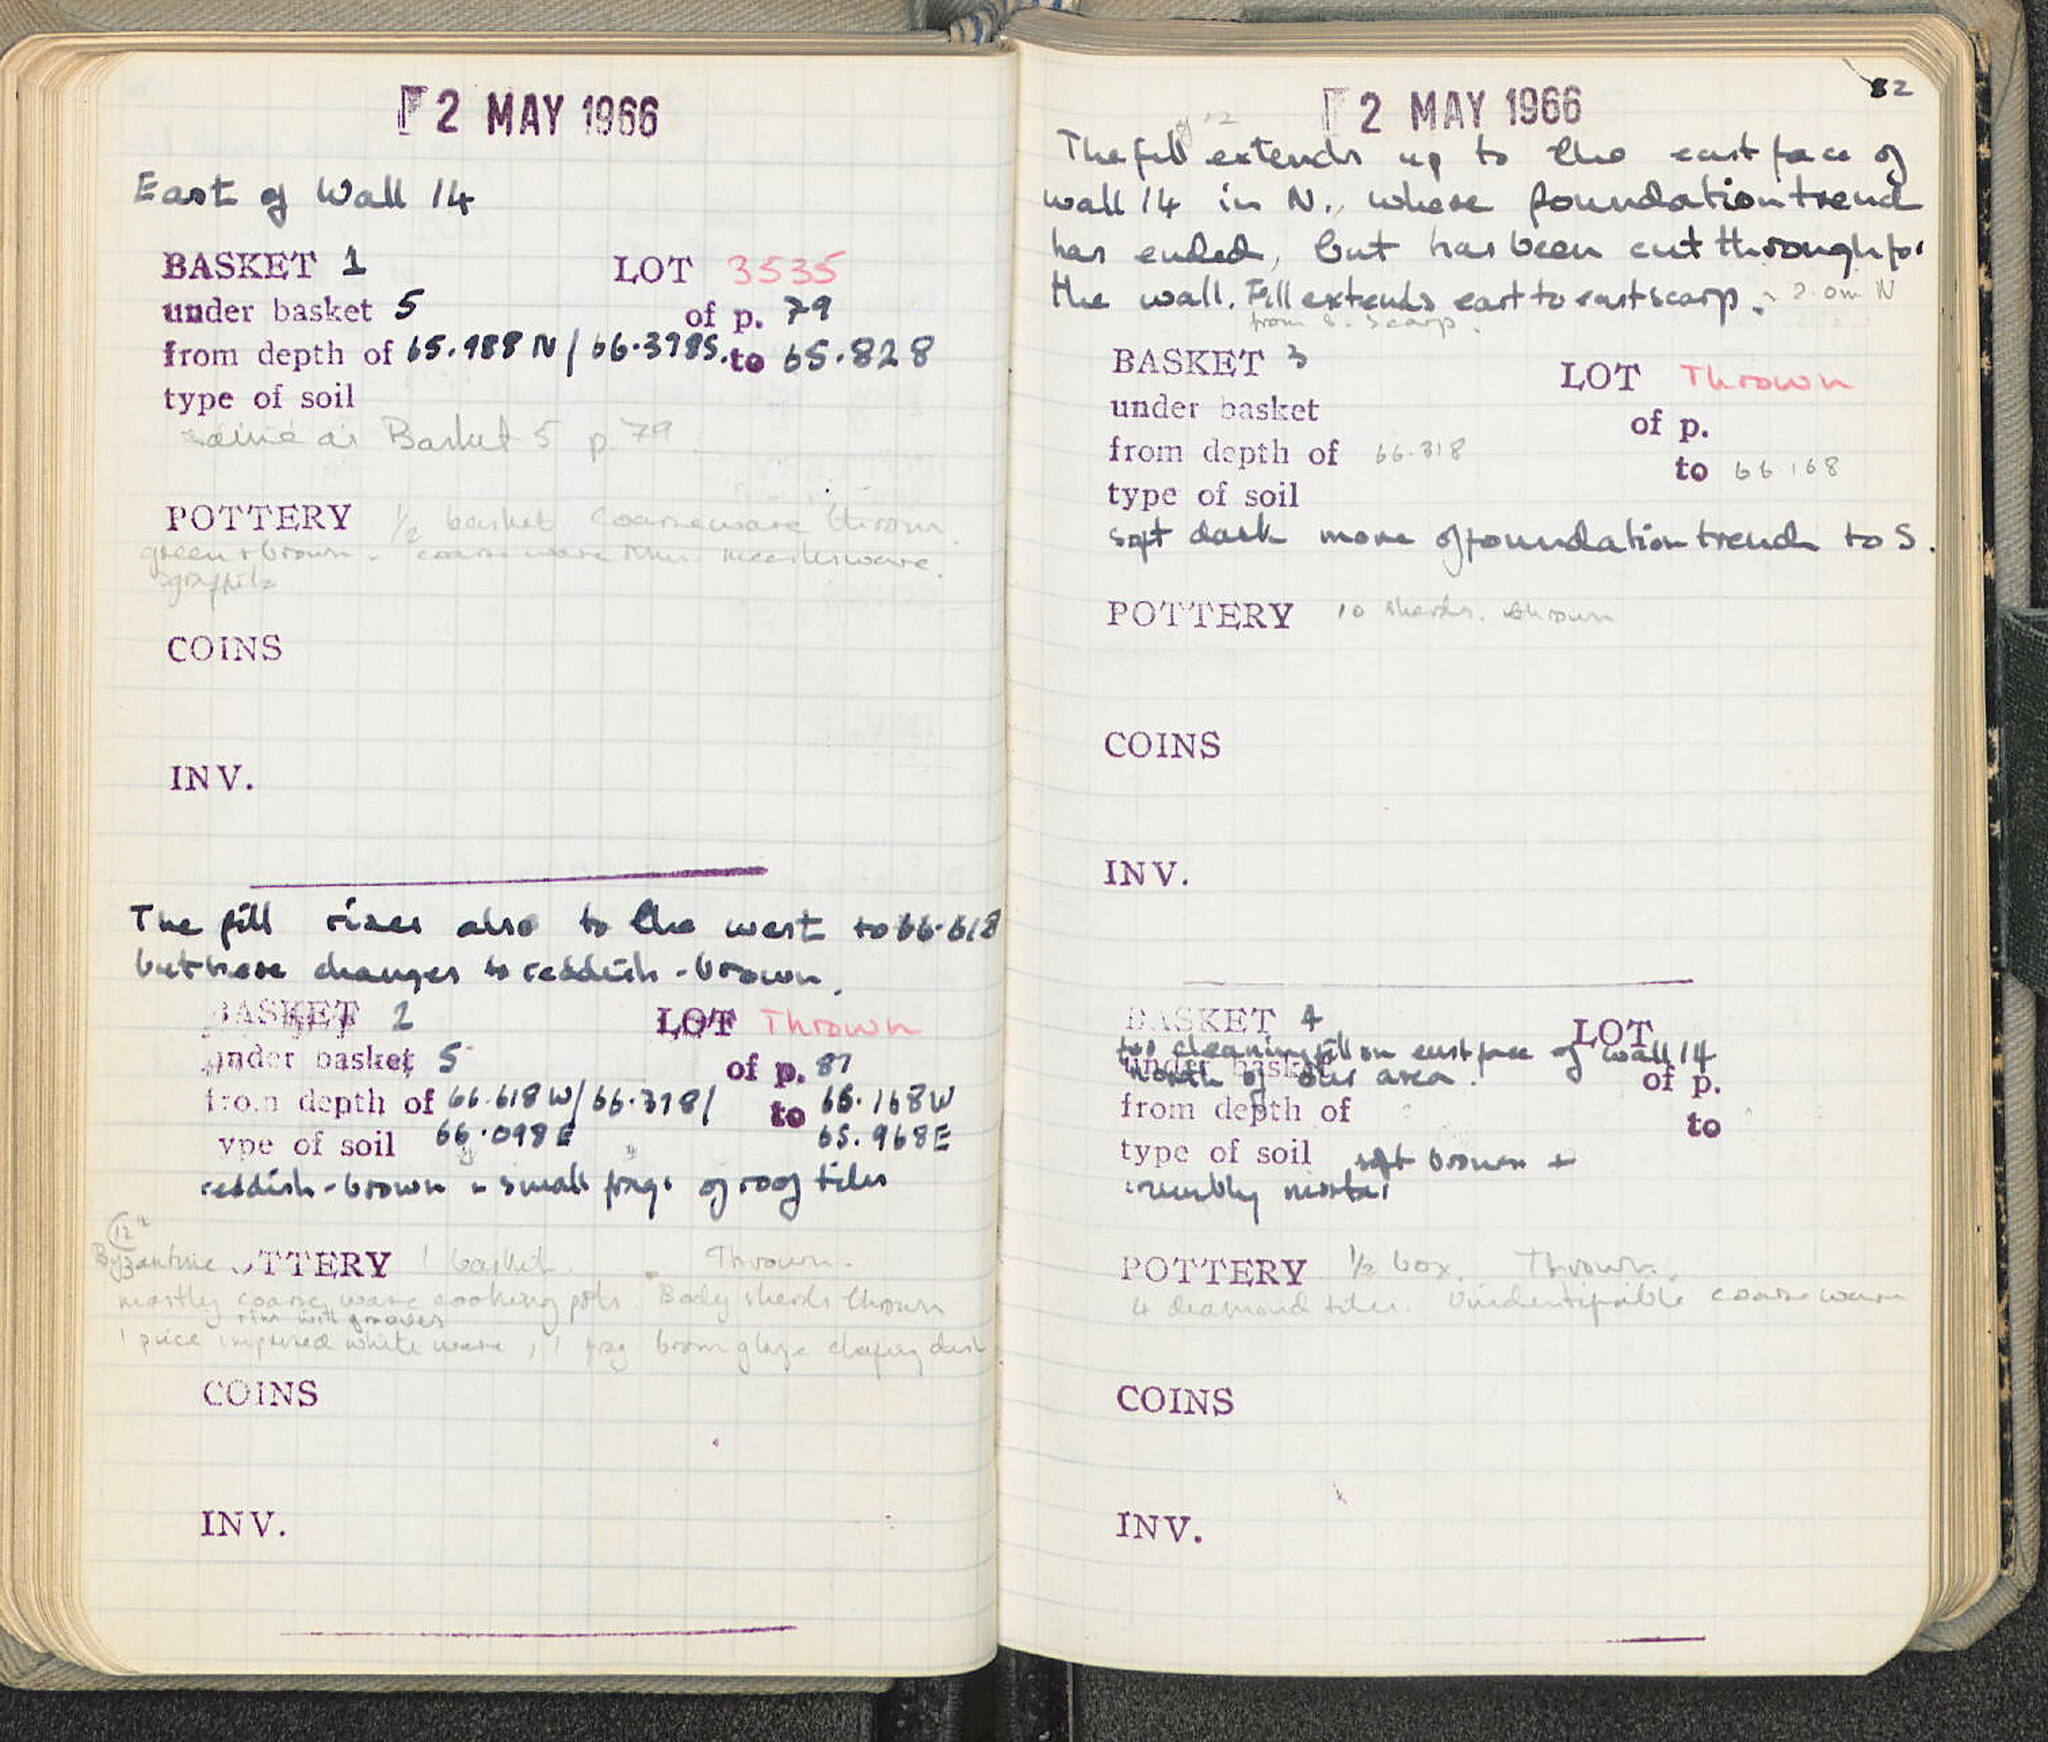 2 MAY 1966
East of Wall 14
BASKET 1 LOT 3535
under basket 5 of p. 79
from depth of 65.988 N / 66.398S. to 65.828
type of soil
same as Basket 5 p. 79
POTTERY 1/2 basket coarseware thrown.
green + brown. coarse ware measlesware.
sgraffito
COINS
INV.
The fill rises also to the west to 66.618
but here changes to reddish-brown.
BASKET 2 LOT Thrown
under basket 5 of p. 81
from depth of 66.618W/66.398/ to 66.168W
ype of soil 66.098E 65.968E
reddish-brown + small frags of roof tiles
12th
Byzantine OTTERY 1 basket. Thrown.
mostly coarse ware cooking pots. Body sherds thrown
rim with grooves
1 piece impressed white ware, 1 frag brown glaze chafing dish
COINS
INV.
82
2 MAY 1966
of B2
The fill extends up to the east face of
wall 14 in N., where foundation trench
has ended, but has been cut through for
the wall. Fill extends east to east scarp. ~ 2.0m N
from S. scarp.
BASKET 3 LOT Thrown
under basket of p.
from depth of 66.318 to 66.168
type of soil
soft dark more of foundation trench to S.
POTTERY 10 sherds. thrown
COINS
INV.
BASKET 4 LOT
for cleaning fill on east face of wall 14
under basket of p.
north of our area.
from depth of to
type of soil soft brown +
crumbly mortar
POTTERY 1/2 box. Thrown.
4 diamond tiles. Unidentifiable coarse ware
COINS
INV.